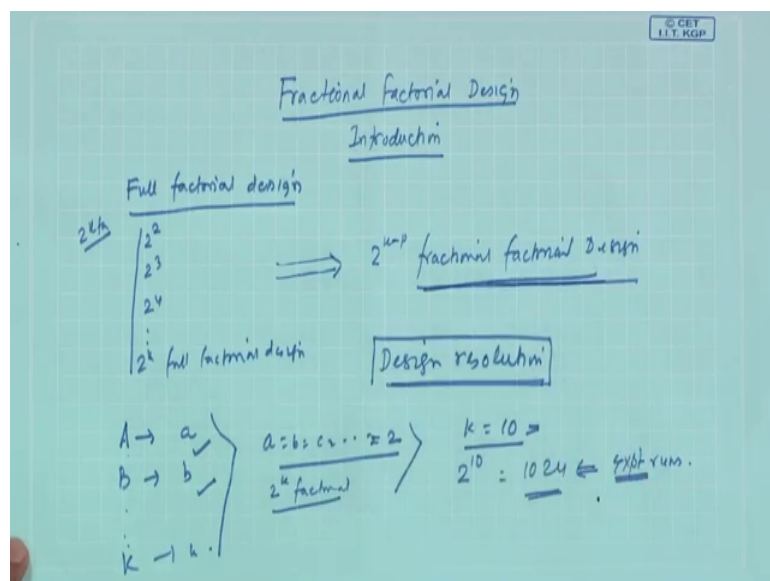 © CET
I.I.T. KGP
Fractional Factorial Design
Introduction
Full factorial design
2^2
2^3
2^4
⋮
2^k full factorial design
⇒ 2^{k-p} fractional factorial Design
Design resolution
A → a ✓
B → b ✓
⋮
K → k
a = b = c = ... = 2
2^k factorial
k = 10
2^10 = 1024 ⇐ expt runs.